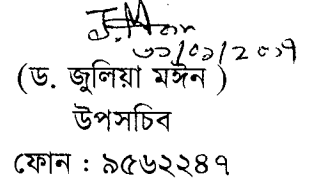 ৩১/০১/২০১৭
(ড. জুলিয়া মঈন )
উপসচিব
ফোন : ৯৫৬২২৪৭